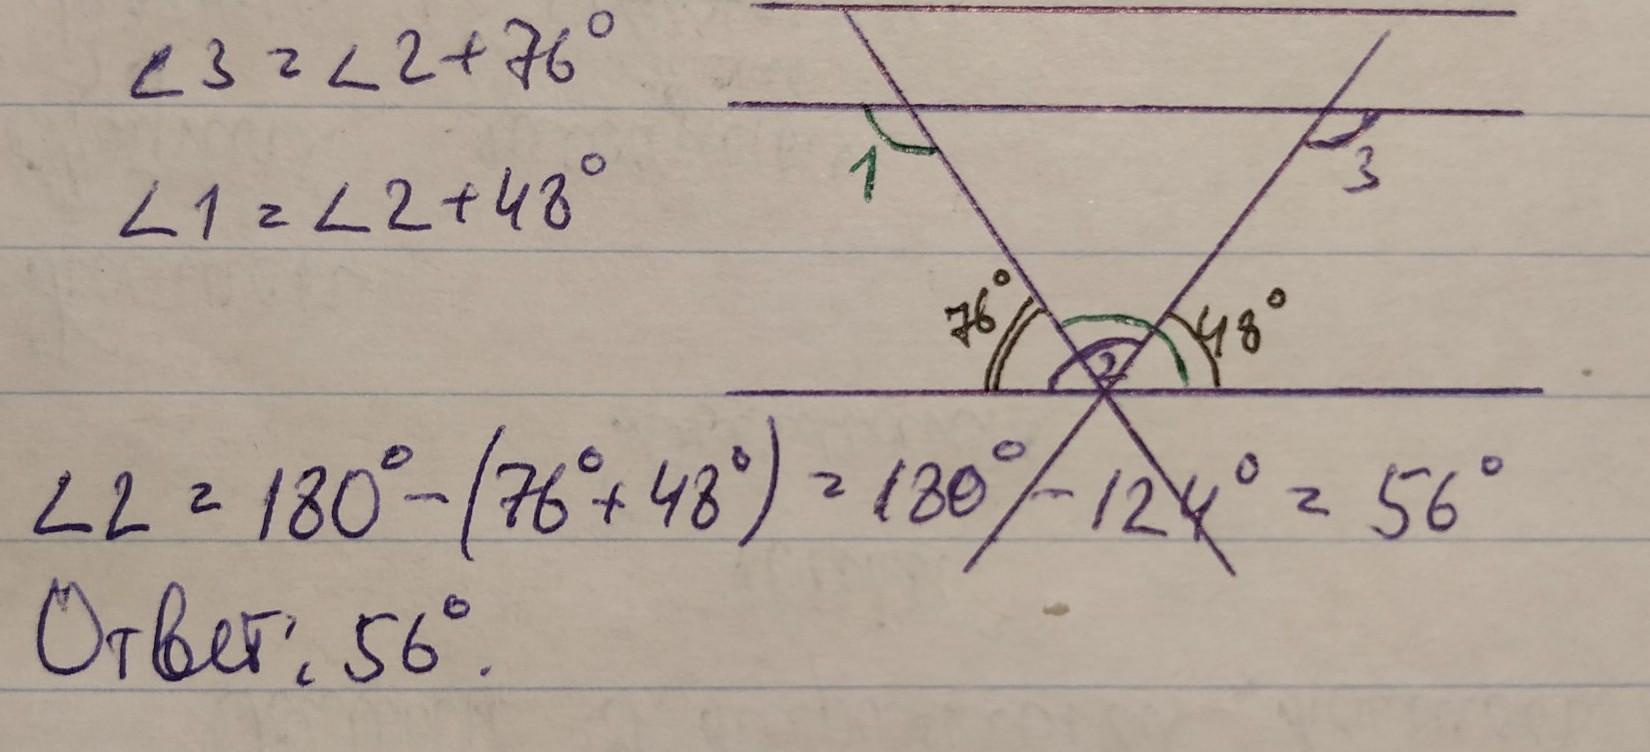 ∠3 = ∠2 + 76°
∠1 = ∠2 + 48°
1
3
76°
2
48°
∠2 = 180° - (76° + 48°) = 180° - 124° = 56°
Ответ: 56°.